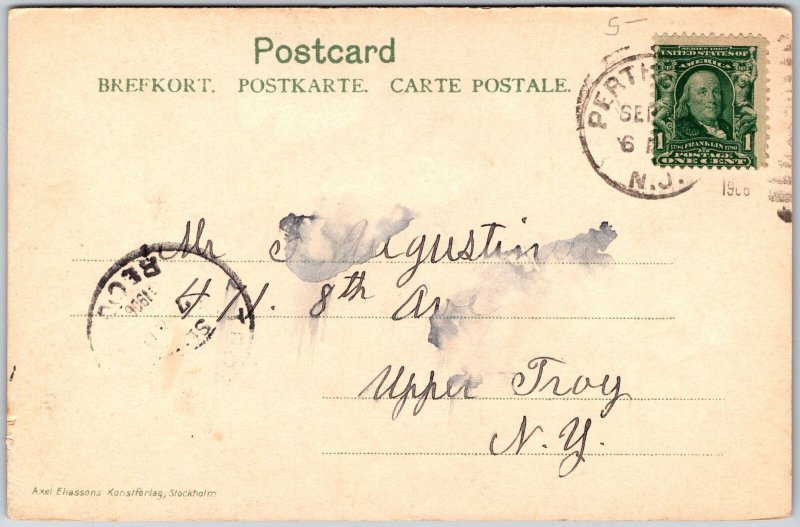 5-
Postcard
BREFKORT. POSTKARTE. CARTE POSTALE.
SERIES 1902
UNITED STATES OF
AMERICA
1706 FRANKLIN 1790
POSTAGE
1 ONE CENT 1
PERTH
SEP
6
N.J.
1906
Mr F. Augustine
471. 8th Ave
Upper Troy
N.Y.
REC'D
7
1906
Axel Eliassons Konstförlag, Stockholm